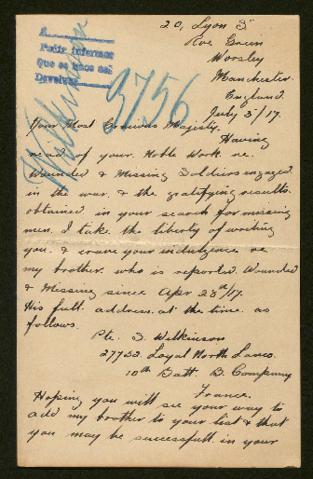 20, Lyon St
Roe Green
Worsley
Manchester
England
July 3rd/17.
A
Pedir informes
Que se hace así
Devolver
Wilkinson
9756
Your Most Gracious Majesty.
Having
read of your Noble Work re.
Wounded & Missing Soldiers engaged
in the war, & the gratifying results
obtained in your search for missing
men, I take the liberty of writing
you, & crave your indulgence re
my brother who is reported Wounded
& Missing since Apr 28th/17.
His full address at the time as
follows.
Pte. S. Wilkinson
27752 Loyal North Lancs.
10th Batt. B Company
France.
Hoping you will see your way to
add my brother to your list & that
you may be successfull in your